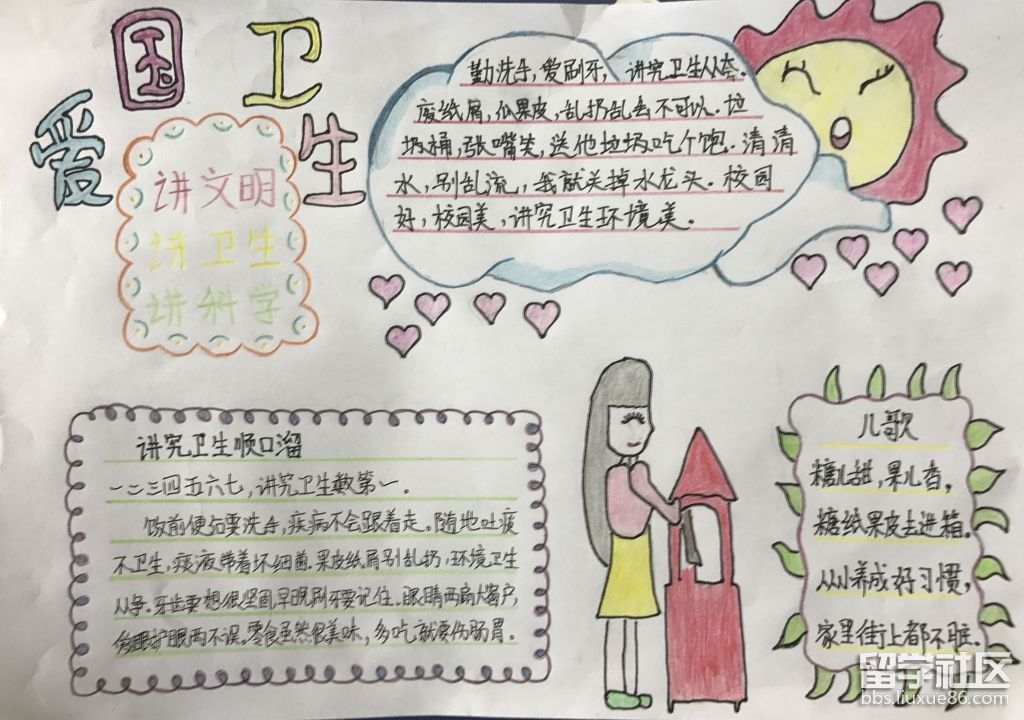 爱国卫生
讲文明
讲卫生
讲科学
勤洗手,爱刷牙,讲究卫生
废纸屑,瓜果皮,乱扔乱丢不可以.垃
圾桶,张嘴笑,送他垃圾吃个饱.清清
水,别乱流,我就关掉水龙头.校园
好,校园美,讲究卫生环境美。
讲究卫生顺口溜
一二三四五六七,讲究卫生数第一.
饭前便后要洗手,疾病不会跟着走.随地吐痰
不卫生,痰液带着坏细菌.果皮纸屑别乱扔,环境卫生
牙齿要想很坚固,早晚刷牙要记住.眼睛两扇大窗户,
护眼两不误。零食虽然很美味,多吃就要伤肠胃.
儿歌
糖儿甜,果儿香,
糖纸果皮丢进箱.
从小养成好习惯,
家里街上都不脏.
留学社区
bbs.liuxue86.com